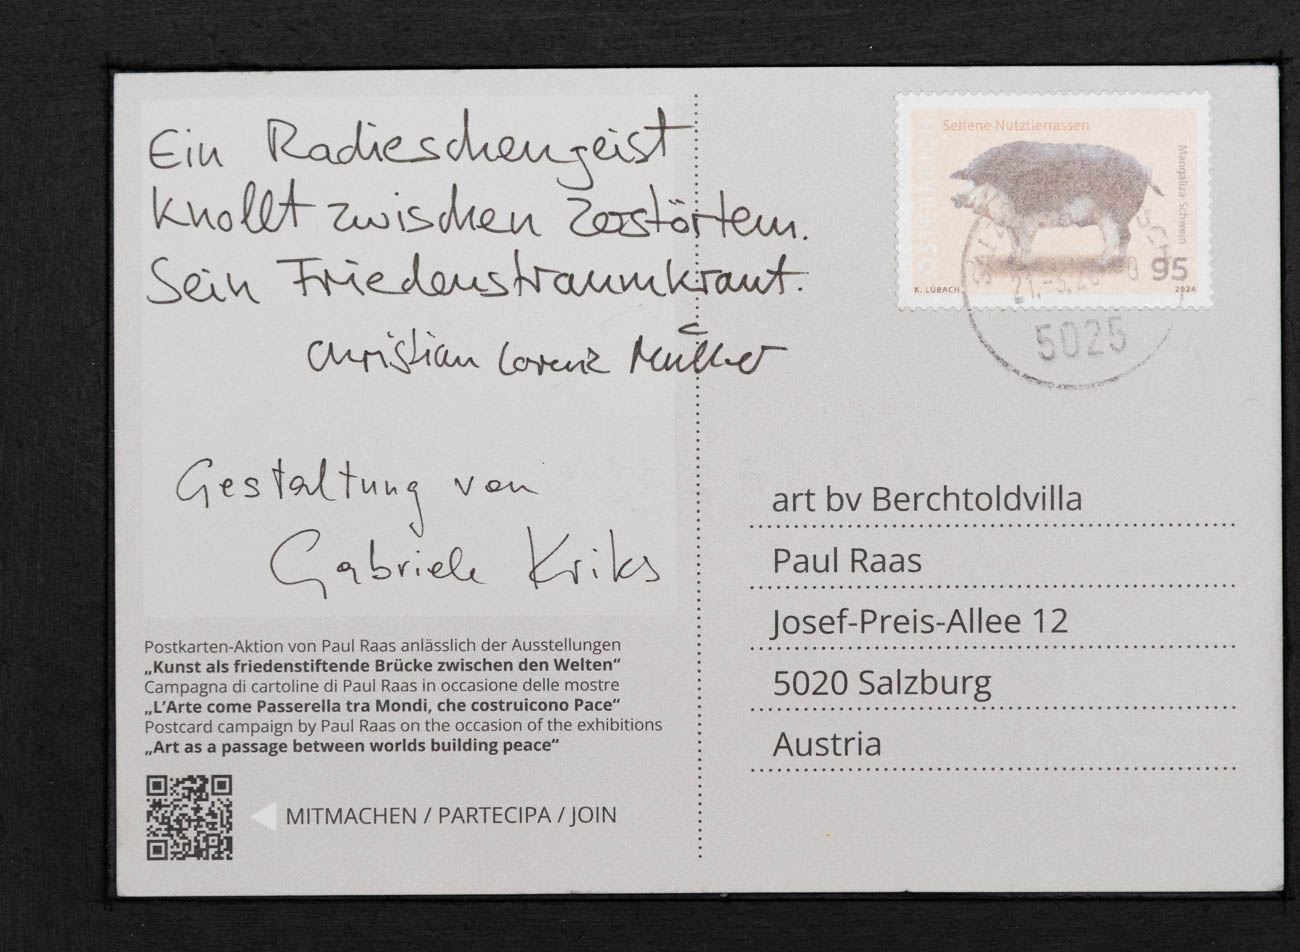 Ein Radieschengeist
knollt zwischen Zerstörtem.
Sein Friedenstraumkraut.
Christian Lorenz Müller
Gestaltung von
Gabriele Kriks
Postkarten-Aktion von Paul Raas anlässlich der Ausstellungen
„Kunst als friedenstiftende Brücke zwischen den Welten“
Campagna di cartoline di Paul Raas in occasione delle mostre
„L’Arte come Passerella tra Mondi, che costruicono Pace“
Postcard campaign by Paul Raas on the occasion of the exhibitions
„Art as a passage between worlds building peace“
MITMACHEN / PARTECIPA / JOIN
Seltene Nutztierrassen
Mangaliza-Schwein
ÖSTERREICH
95
K. LÜBACH
2024
5025
art bv Berchtoldvilla
Paul Raas
Josef-Preis-Allee 12
5020 Salzburg
Austria